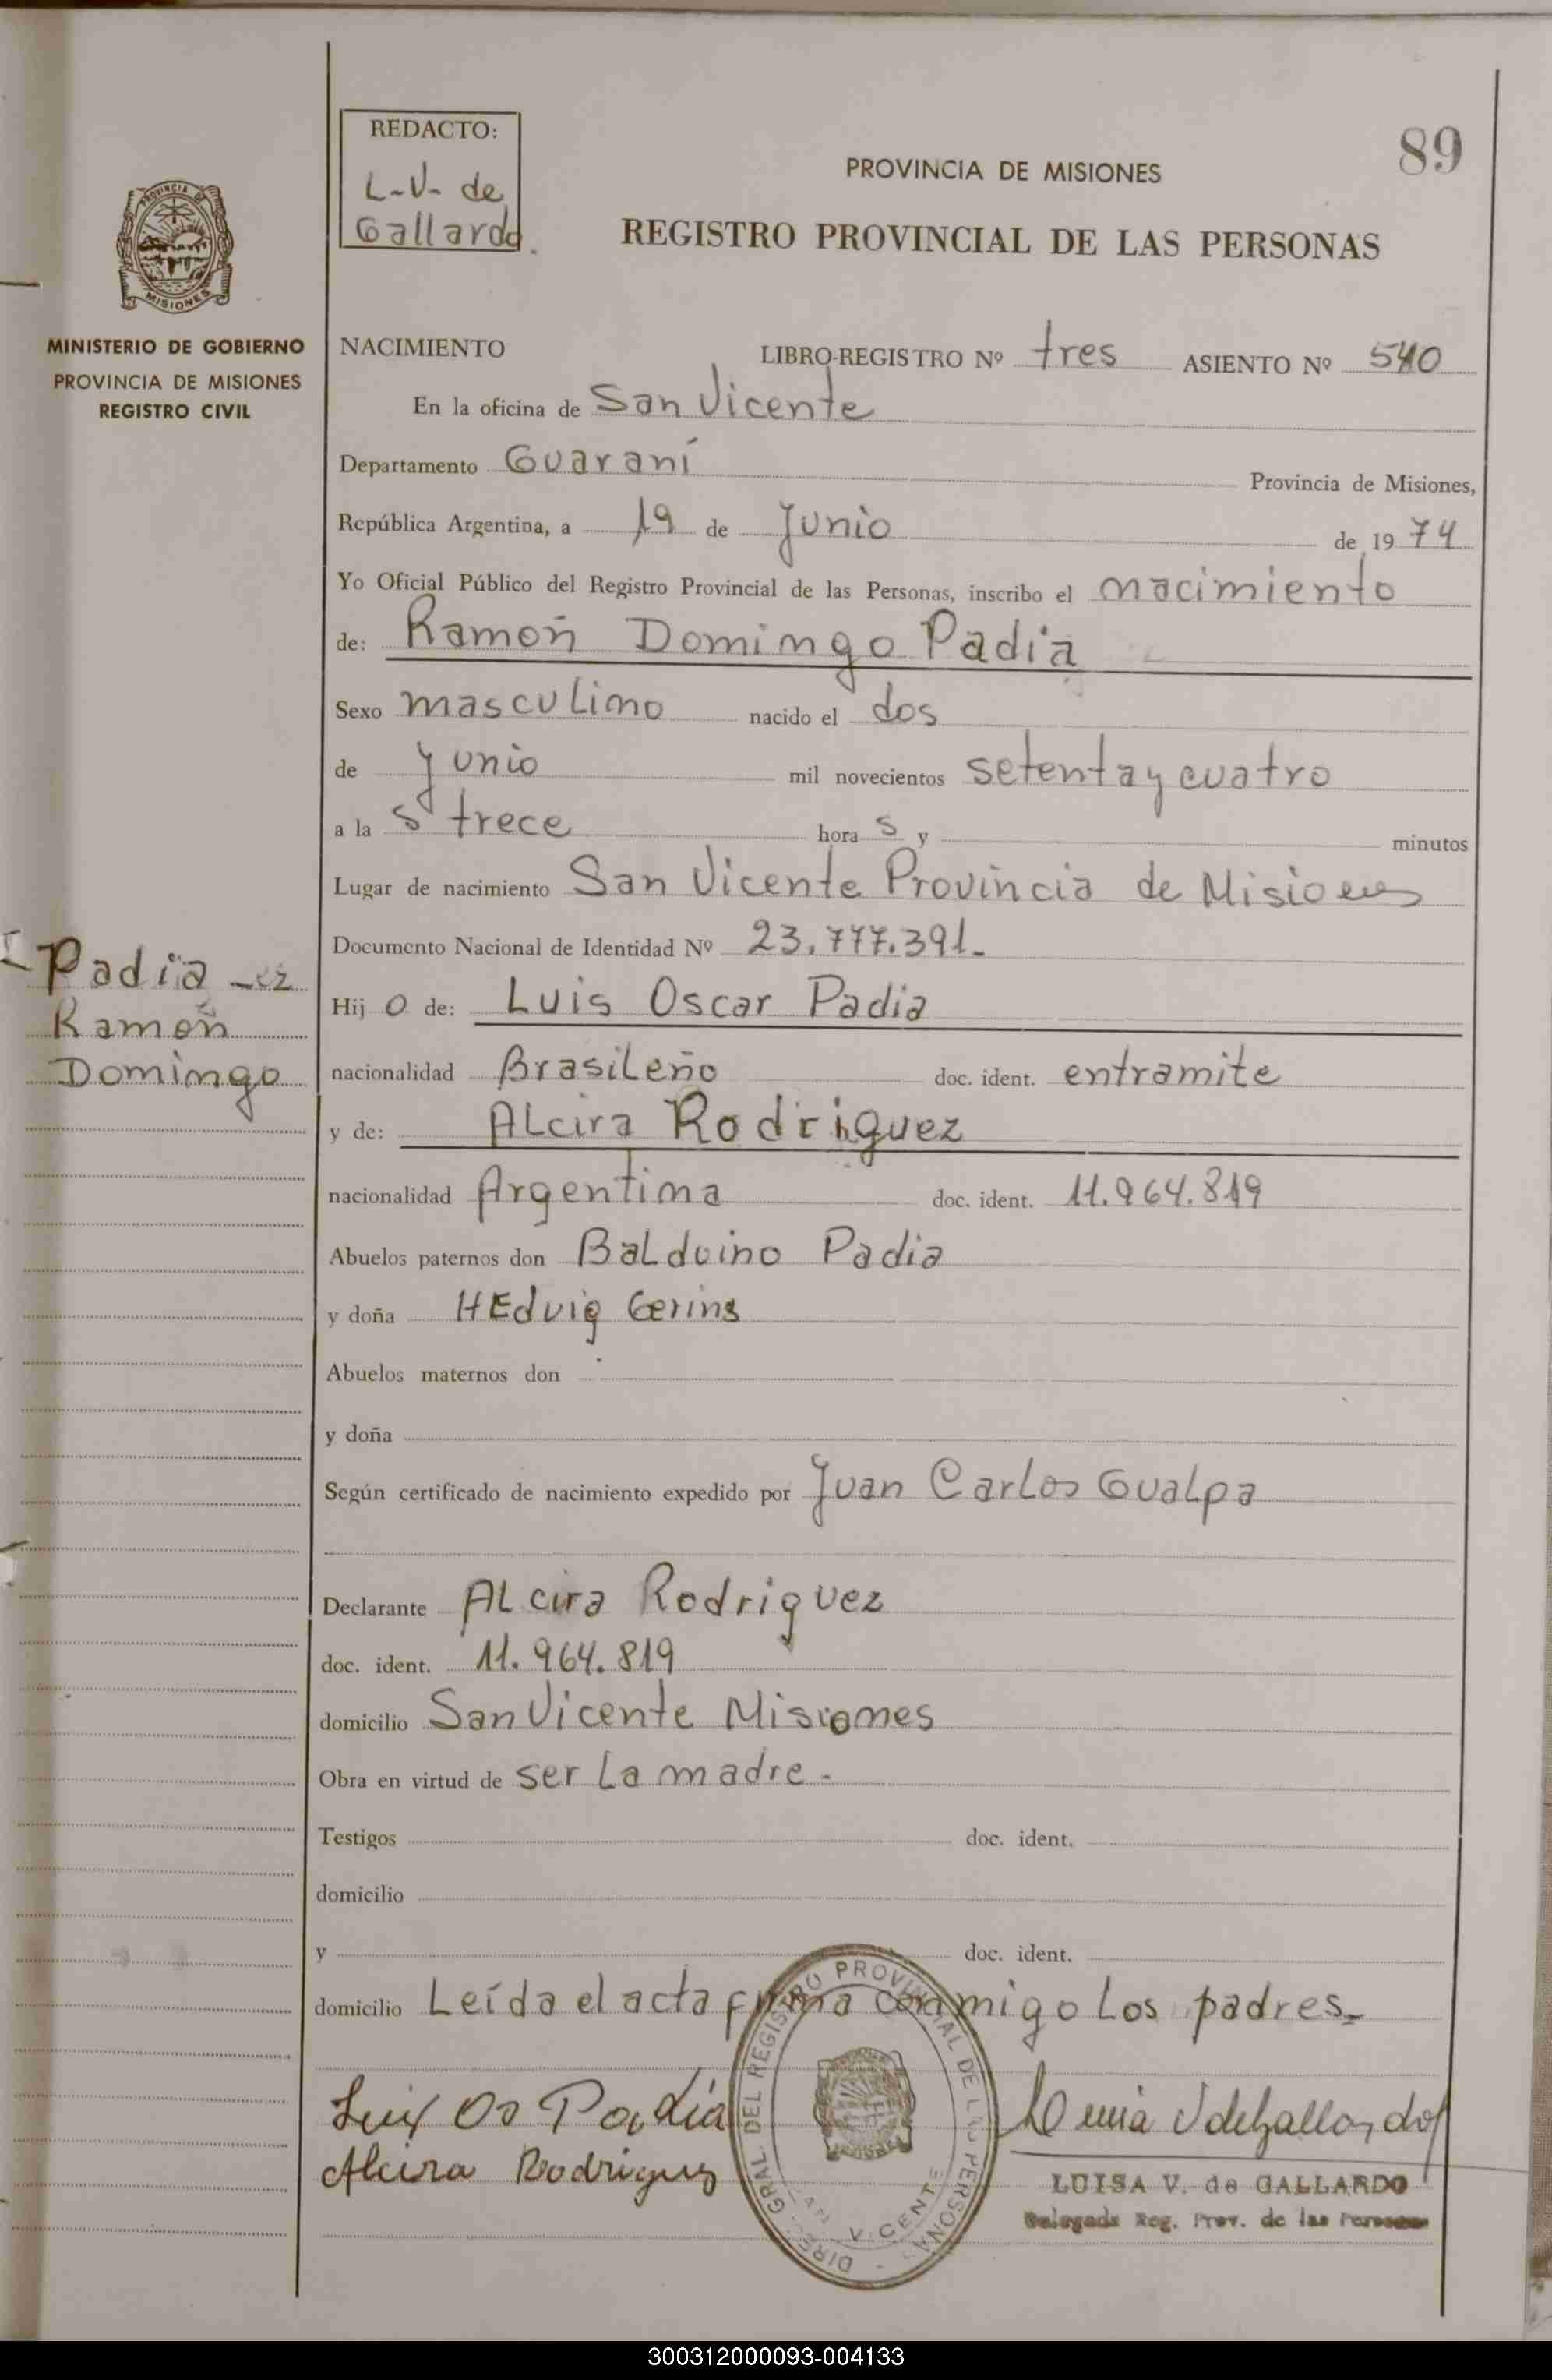 REDACTO:
L-V- de
Gallardo.
89
PROVINCIA DE MISIONES
REGISTRO PROVINCIAL DE LAS PERSONAS
PROVINCIA DE
MISIONES
MINISTERIO DE GOBIERNO
PROVINCIA DE MISIONES
REGISTRO CIVIL
NACIMIENTO LIBRO-REGISTRO Nº tres ASIENTO Nº 540
En la oficina de San Vicente
Departamento Guaraní Provincia de Misiones,
República Argentina, a 19 de Junio de 1974
Yo Oficial Público del Registro Provincial de las Personas, inscribo el nacimiento
de: Ramoñ Domingo Padia
Sexo masculino nacido el dos
de Junio mil novecientos setenta y cuatro
a la s trece hora s y minutos
Lugar de nacimiento San Vicente Provincia de Misiones
Documento Nacional de Identidad Nº 23.777.391-
Padia
Ramoñ
Domingo
Hij o de: Luis Oscar Padia
nacionalidad Brasileño doc. ident. entramite
y de: Alcira Rodriguez
nacionalidad Argentina doc. ident. 11.964.819
Abuelos paternos don Balduino Padia
y doña HEdvig Gerins
Abuelos maternos don
y doña
Según certificado de nacimiento expedido por Juan Carlos Gualpa
Declarante Alcira Rodriguez
doc. ident. 11.964.819
domicilio San Vicente Misiones
Obra en virtud de ser La madre-
Testigos doc. ident.
domicilio
y doc. ident.
domicilio Leída el acta firma conmigo Los padres-
Luis Os Padia
Alcira Rodriguez
DIREC. GRAL. DEL REGISTRO PROVINCIAL DE LAS PERSONAS
SAN VICENTE
LUISA V. de GALLARDO
Delegada Reg. Prov. de las Personas
300312000093-004133